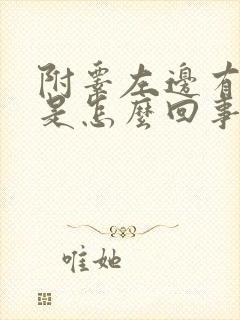 附要左邊有
是怎麼回事
唯她